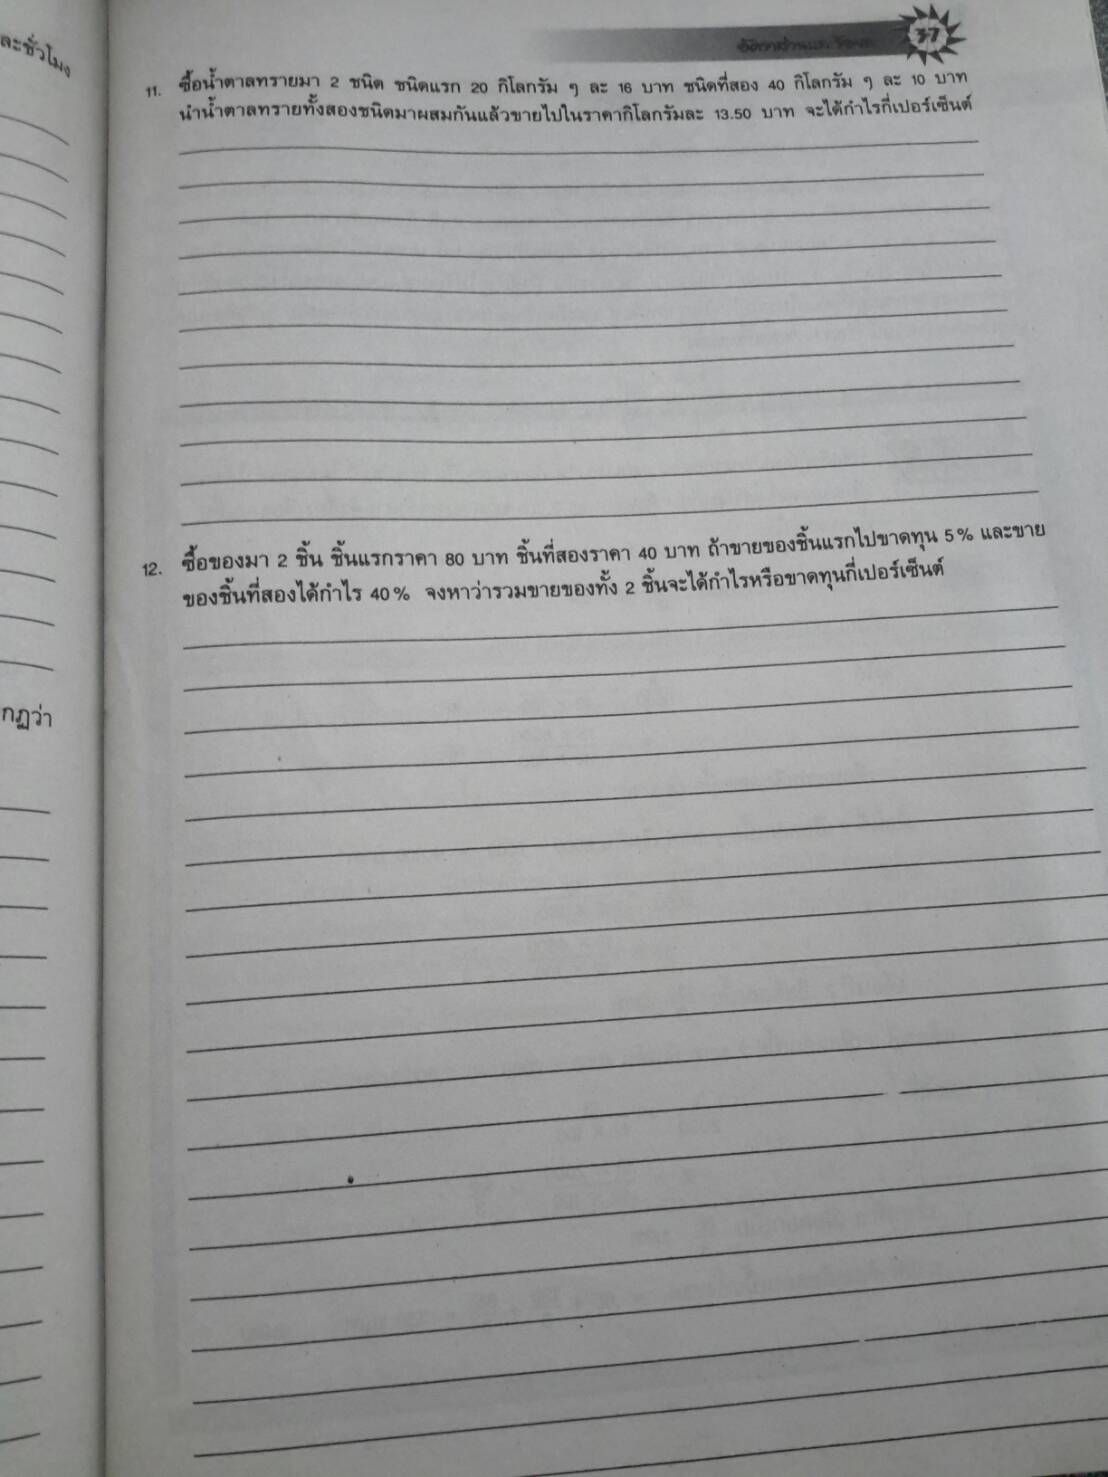 ละชั่วโมง
37
11. ซื้อน้ำตาลทรายมา 2 ชนิด ชนิดแรก 20 กิโลกรัม ๆ ละ 16 บาท ชนิดที่สอง 40 กิโลกรัม ๆ ละ 10 บาท
นำน้ำตาลทรายทั้งสองชนิดมาผสมกันแล้วขายไปในราคากิโลกรัมละ 13.50 บาท จะได้กำไรกี่เปอร์เซ็นต์
12. ซื้อของมา 2 ชิ้น ชิ้นแรกราคา 80 บาท ชิ้นที่สองราคา 40 บาท ถ้าขายของชิ้นแรกไปขาดทุน 5% และขาย
ของชิ้นที่สองได้กำไร 40% จงหาว่ารวมขายของทั้ง 2 ชิ้นจะได้กำไรหรือขาดทุนกี่เปอร์เซ็นต์
กฏว่า